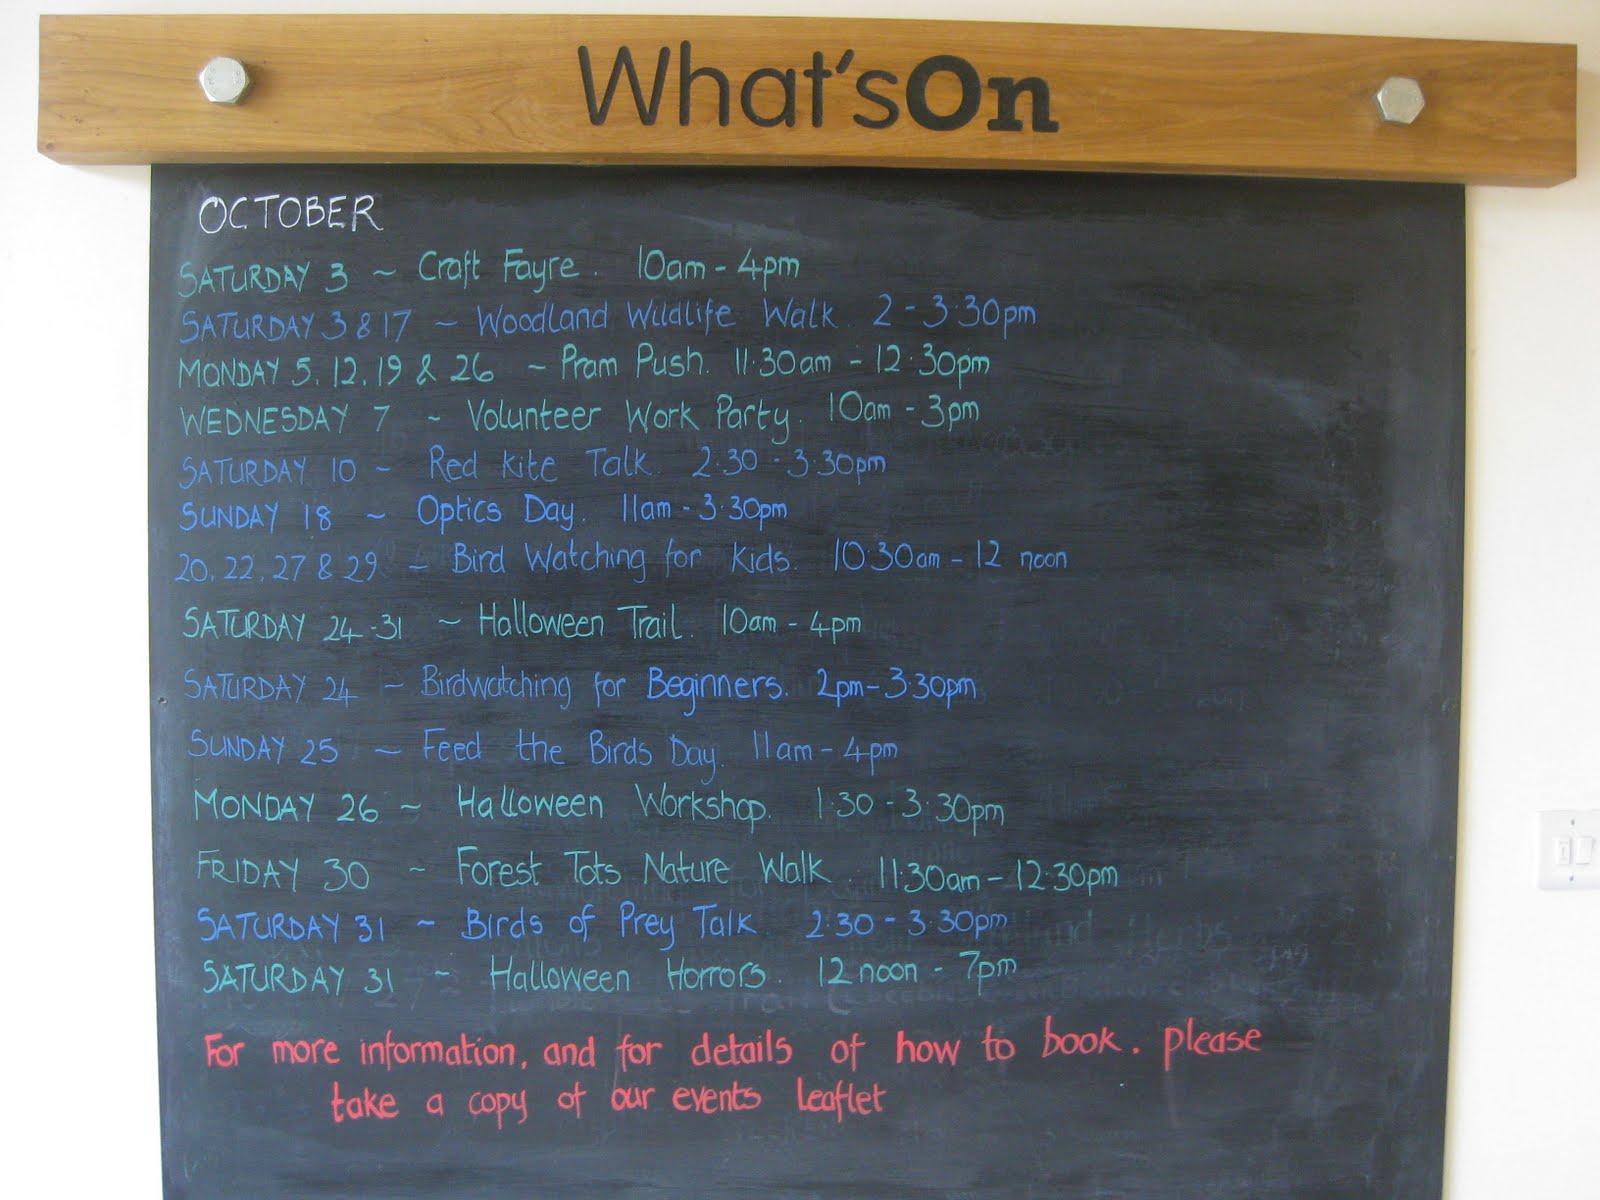 What'sOn
OCTOBER
SATURDAY 3 ~ Craft Fayre. 10am - 4pm
SATURDAY 3 & 17 ~ Woodland Wildlife Walk. 2 - 3.30pm
MONDAY 5, 12, 19 & 26 ~ Pram Push. 11.30am - 12.30pm
WEDNESDAY 7 ~ Volunteer Work Party. 10am - 3pm
SATURDAY 10 ~ Red Kite Talk. 2.30 - 3.30pm
SUNDAY 18 ~ Optics Day. 11am - 3.30pm
20, 22, 27 & 29 ~ Bird Watching for Kids. 10.30am - 12 noon
SATURDAY 24-31 ~ Halloween Trail. 10am - 4pm
SATURDAY 24 ~ Birdwatching for Beginners. 2pm - 3.30pm
SUNDAY 25 ~ Feed the Birds Day. 11am - 4pm
MONDAY 26 ~ Halloween Workshop. 1.30 - 3.30pm
FRIDAY 30 ~ Forest Tots Nature Walk. 11.30am - 12.30pm
SATURDAY 31 ~ Birds of Prey Talk 2.30 - 3.30pm
SATURDAY 31 ~ Halloween Horrors. 12 noon - 7pm
For more information, and for details of how to book. please
take a copy of our events leaflet